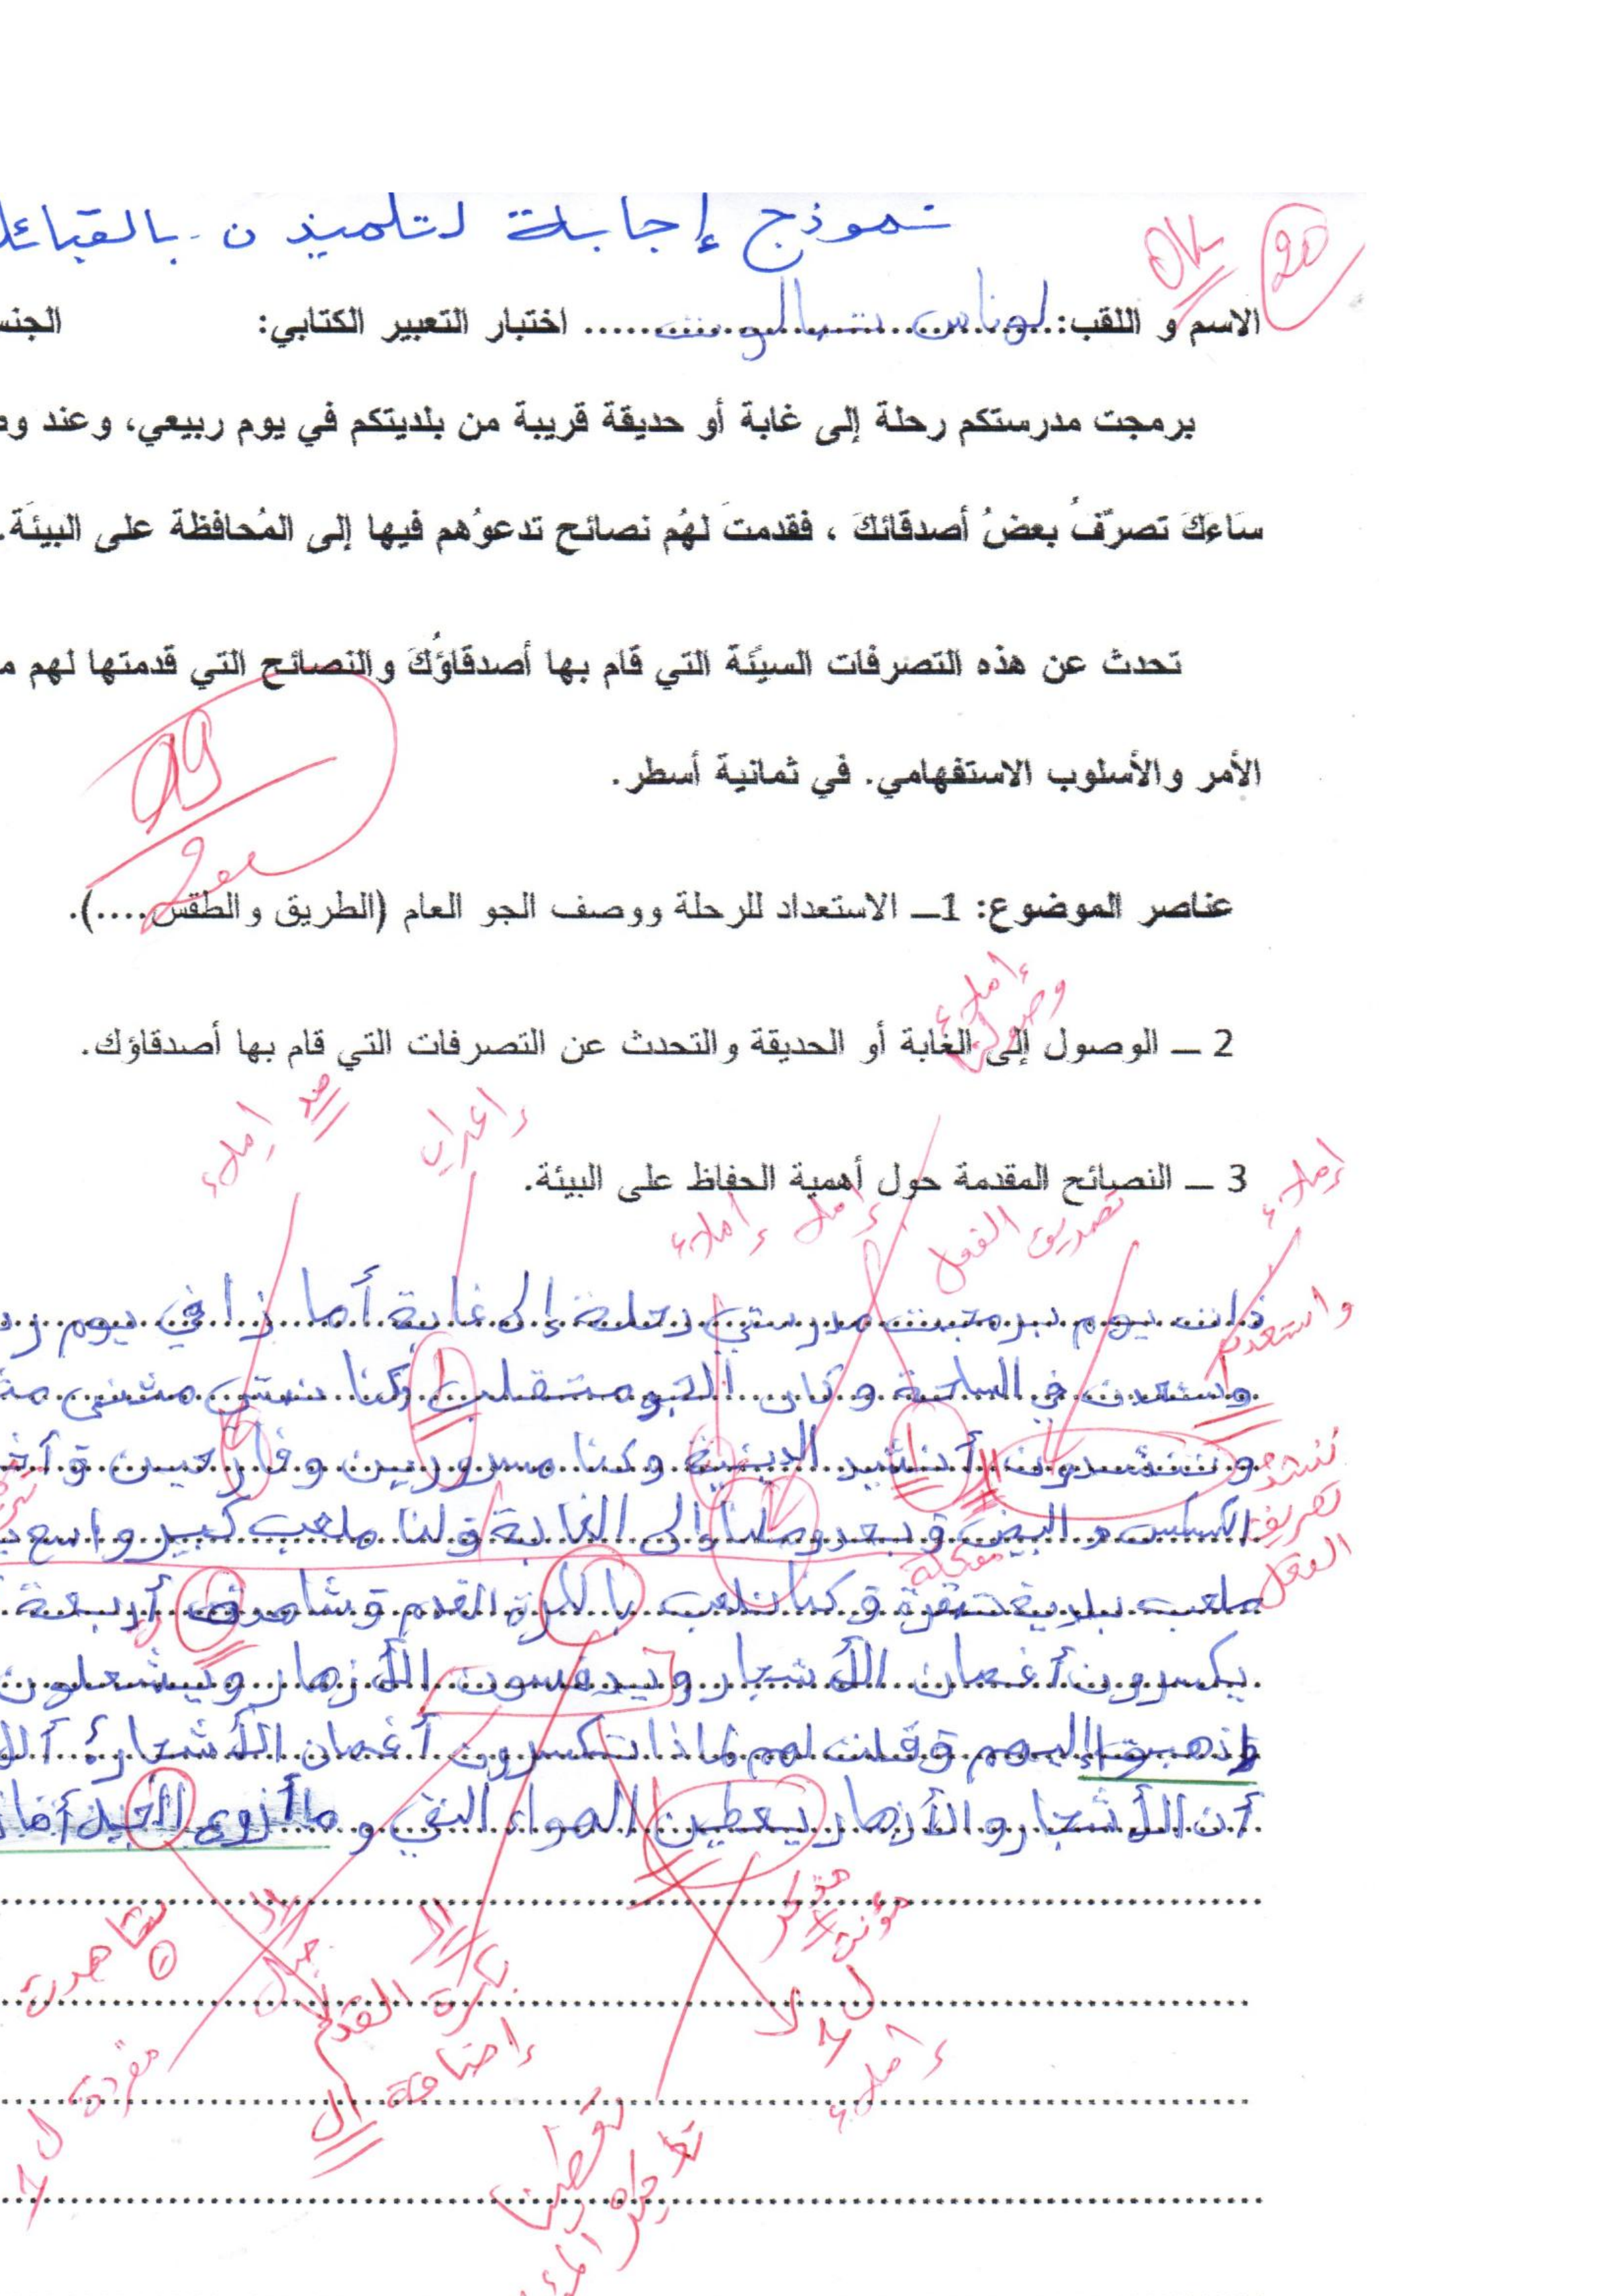 نموذج إجابة لتلميذ ن بالقبائل
20 OK
الاسم و اللقب: لوناس اختبار التعبير الكتابي: الجنس
برمجت مدرستكم رحلة إلى غابة أو حديقة قريبة من بلديتكم في يوم ربيعي، وعند
سَاءَكَ تصرّفُ بعضُ أصدقائكَ ، فقدمتَ لهُم نصائح تدعوُهم فيها إلى المُحافظة على البيئَة.
تحدث عن هذه التصرفات السيّئة التي قام بها أصدقاؤُكَ والنصائح التي قدمتها لهم
الأمر والأسلوب الاستفهامي. في ثمانية أسطر.
09
20
عناصر الموضوع: 1ــ الاستعداد للرحلة ووصف الجو العام (الطريق والطقس....).
إملاء
وصولنا
2 ــ الوصول إلى الغابة أو الحديقة والتحدث عن التصرفات التي قام بها أصدقاؤك.
إملاء إعراب
3 ــ النصائح المقدمة حول أهمية الحفاظ على البيئة.
إملاء تصريف الفعل إملاء إملاء
ذات يوم برمجت مدرستي رحلة إلى غابة أمازا في يوم
وستعدت في الساحة و كان الجو متقلب وكنا نمتي مثنى
وننشدون أناشيد الدينية وكنا مسرورين وفارحين و
تصريف الفعل
الكسكس و البيض و بعد وصلنا إلى الغابة و لنا ملعب كبير واسع
ملعب بلدية تيقزة و كنا نلعب بالكرة القدم و شاهدت أربعة
يكسرون أغصان الأشجار و يدفسون الأزهار و يشعلون
وذهبوا إليهم و قلت لهم لماذا تكسرون أغصان الأشجار؟
أن الأشجار و الأزهار يعطين الهواء النقي و
مذكر
مؤنث
شاهدت
ال
بكرة القدم
إضافة ال
إملاء
مفردة
تعطينا